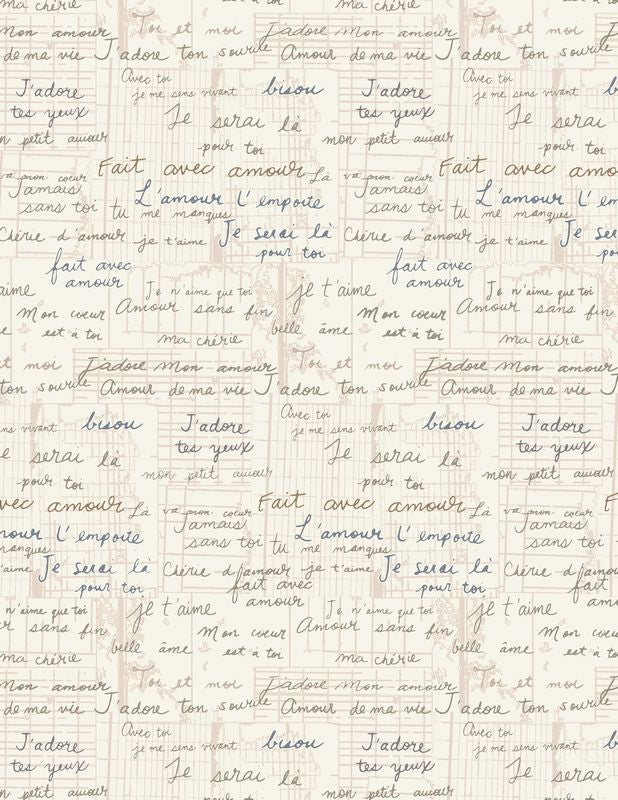 ma chérie ma chérie
Mon amour Toi et moi J'adore Mon amour Toi et moi
de ma vie J'adore ton sourire Amour de ma vie J'adore ton sourire
Avec toi Avec toi
J'adore je me sens vivant bisou J'adore je me sens vivant
tes yeux Je serai là tes yeux Je serai
petit amour pour toi mon petit amour pour toi
Fait avec amour Là va mon cœur Fait avec
Jamais L'amour l'emporte Jamais L'amour l'emporte
sans toi tu me manques sans toi tu me manques
Chérie d'amour je t'aime Je serai là Chérie d'amour je t'aime
pour toi
fait avec fait avec
amour amour
Je n'aime que toi je t'aime Je n'aime que toi
Mon cœur Amour sans fin Mon cœur Amour sans fin
est à toi belle âme est à toi
ma chérie ma chérie
et moi J'adore Mon amour Toi et moi J'adore Mon amour
ton sourire Amour de ma vie J'adore ton sourire Amour de ma vie
Avec toi
vivant bisou J'adore je me sens vivant bisou J'adore
serai là tes yeux Je serai là tes yeux
pour toi mon petit amour pour toi mon petit amour
avec amour Là va mon cœur Fait avec amour Là va mon cœur
l'emporte Jamais L'amour l'emporte Jamais
manques sans toi tu me manques sans toi
Je serai là Chérie d'amour je t'aime Je serai là Chérie d'amour
pour toi fait avec pour toi fait
amour
n'aime que toi je t'aime Je n'aime que toi je t'aime
sans fin Mon cœur Amour sans fin Mon cœur
belle âme est à toi belle âme est à
ma chérie ma chérie
Mon amour Toi et moi J'adore Mon amour Toi et moi
de ma vie J'adore ton sourire Amour de ma vie J'adore ton sourire
Avec toi Avec toi
J'adore je me sens vivant bisou J'adore je me sens vivant
tes yeux Je serai là tes yeux Je serai
petit amour mon petit amour